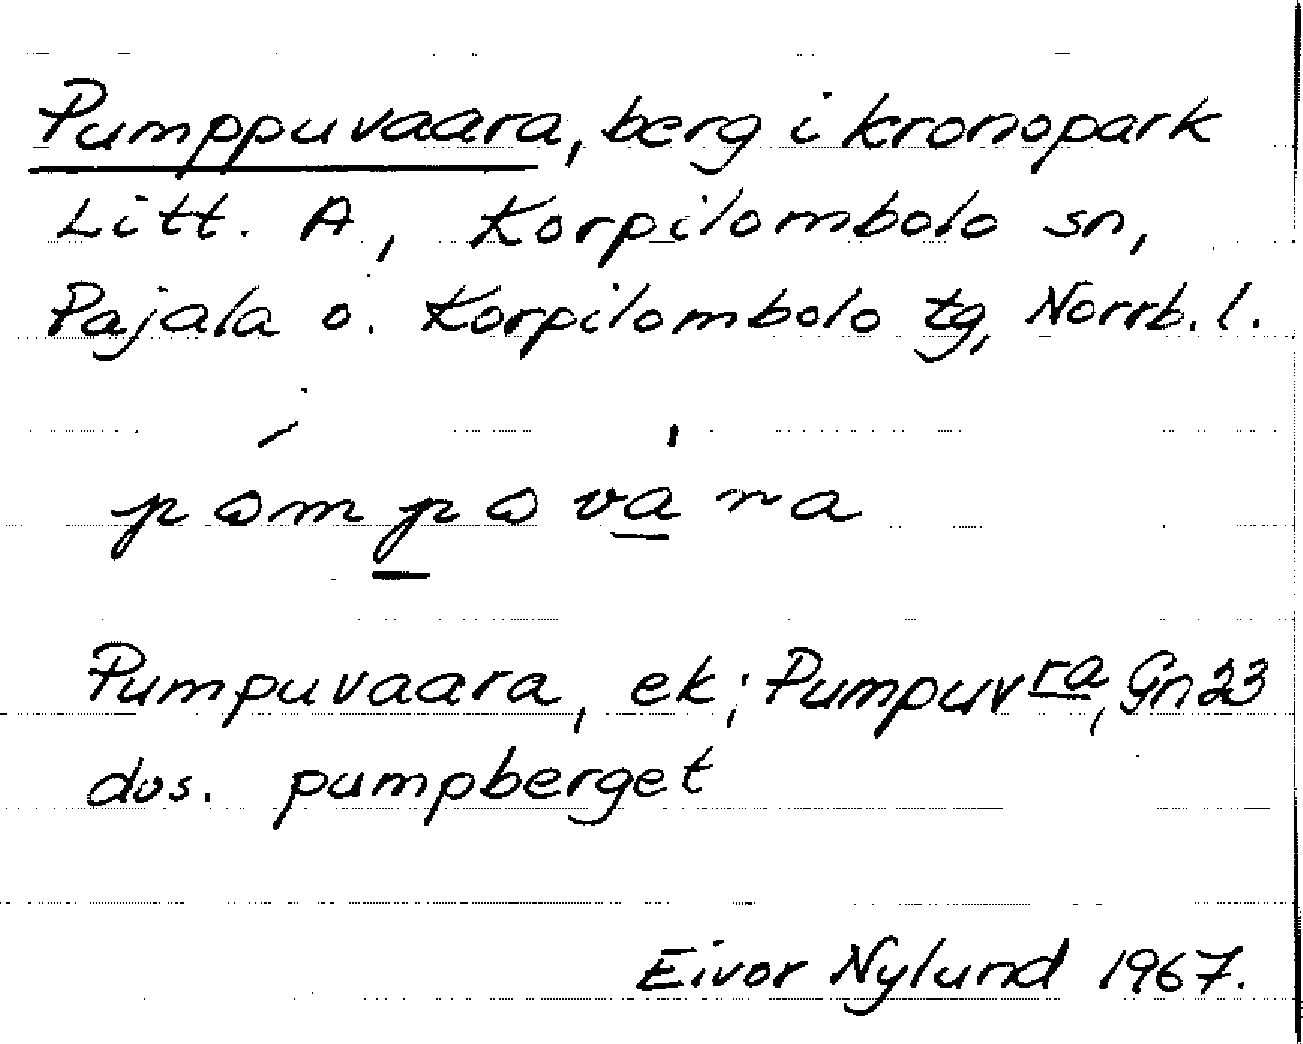 Pumppuvaara, berg i kronopark
Litt. A, Korpilombolo sn,
Pajala o. Korpilombolo tg, Norrb. l.
Pumpuvaara, ek; Pumpuvra, Gn 23
dvs. pumpberget
Eivor Nylund 1967.